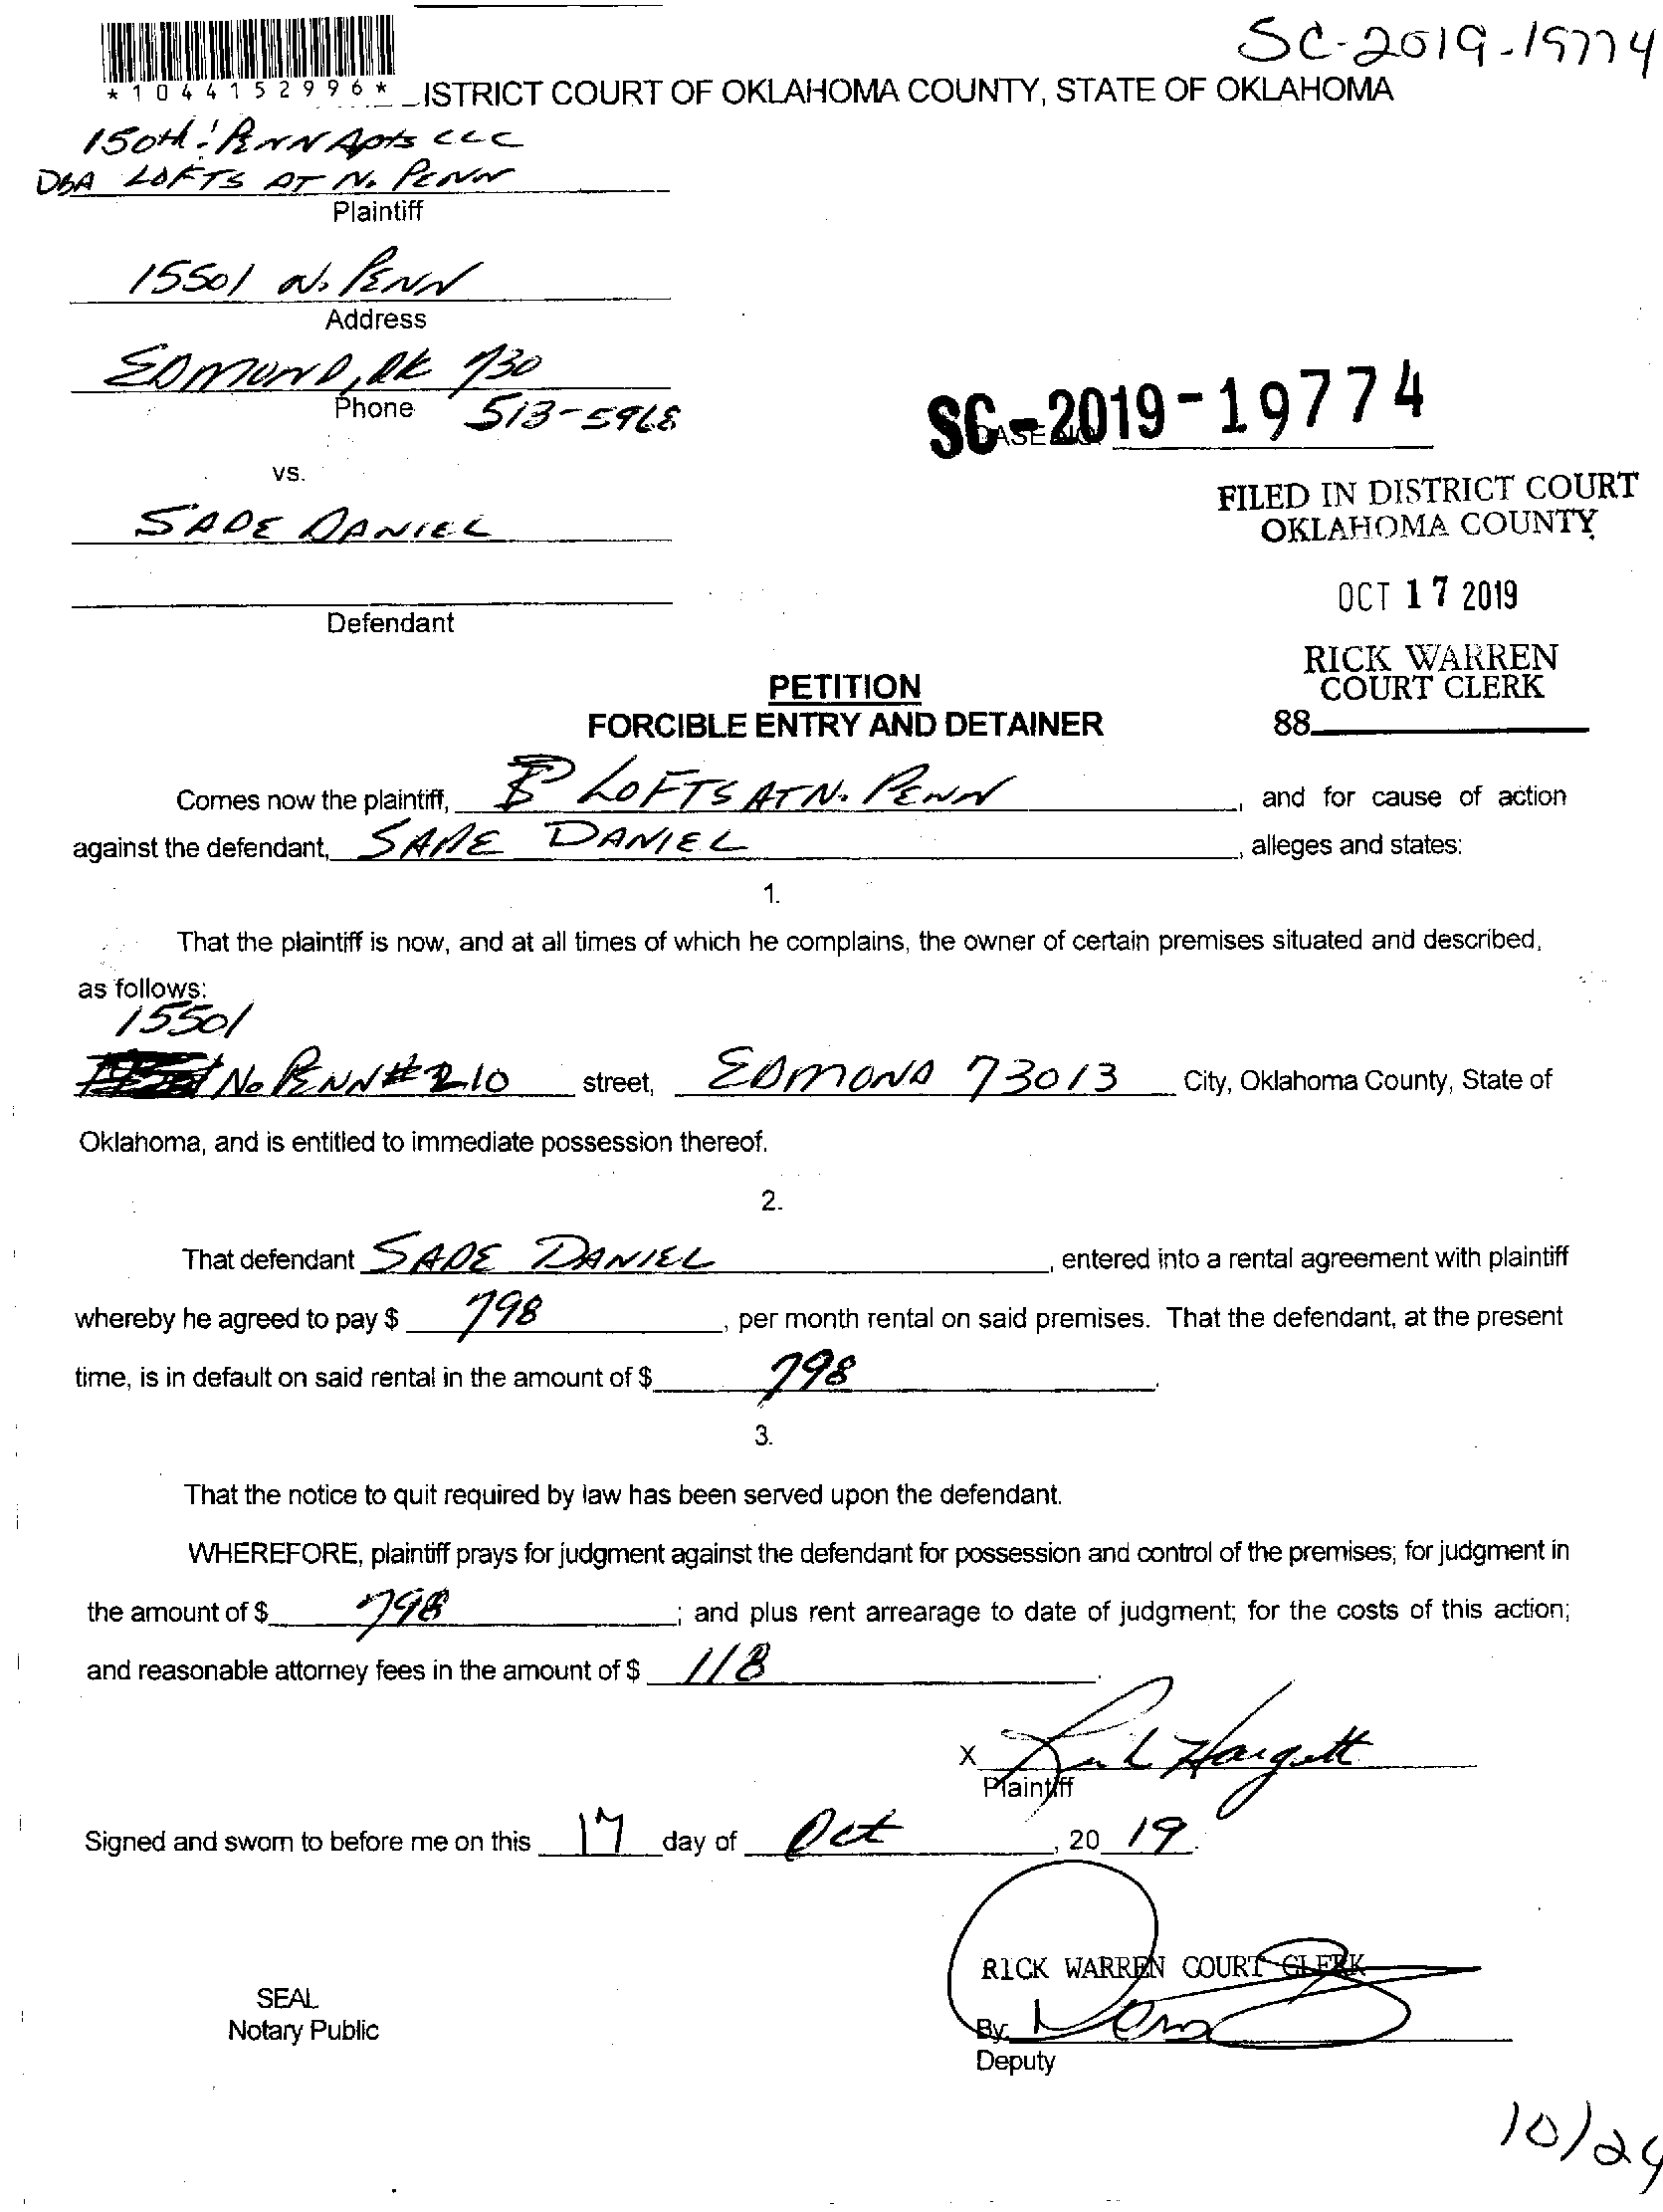 SC-2019-19774
*1044152996*
ISTRICT COURT OF OKLAHOMA COUNTY, STATE OF OKLAHOMA
150th : PENN Apts LLC
DBA LOFTS AT N. PENN
Plaintiff
15501 N. PENN
Address
EDMOND, OK 730
Phone 513-5968
SC-2019-19774
CASE NO.
vs.
FILED IN DISTRICT COURT
OKLAHOMA COUNTY
SADE DANIEL
OCT 17 2019
Defendant
RICK WARREN
COURT CLERK
88
PETITION
FORCIBLE ENTRY AND DETAINER
Comes now the plaintiff, LOFTS AT N. PENN, and for cause of action
against the defendant, SADE DANIEL, alleges and states:
1.
That the plaintiff is now, and at all times of which he complains, the owner of certain premises situated and described,
as follows:
15501
No PENN # 210 street, EDMOND 73013 City, Oklahoma County, State of
Oklahoma, and is entitled to immediate possession thereof.
2.
That defendant SADE DANIEL, entered into a rental agreement with plaintiff
whereby he agreed to pay $ 798, per month rental on said premises. That the defendant, at the present
time, is in default on said rental in the amount of $ 798.
3.
That the notice to quit required by law has been served upon the defendant.
WHEREFORE, plaintiff prays for judgment against the defendant for possession and control of the premises; for judgment in
the amount of $ 798; and plus rent arrearage to date of judgment; for the costs of this action;
and reasonable attorney fees in the amount of $ 118.
X Hargett
Plaintiff
Signed and sworn to before me on this 17 day of Oct, 20 19.
RICK WARREN COURT CLERK
SEAL
Notary Public
By:
Deputy
10/24